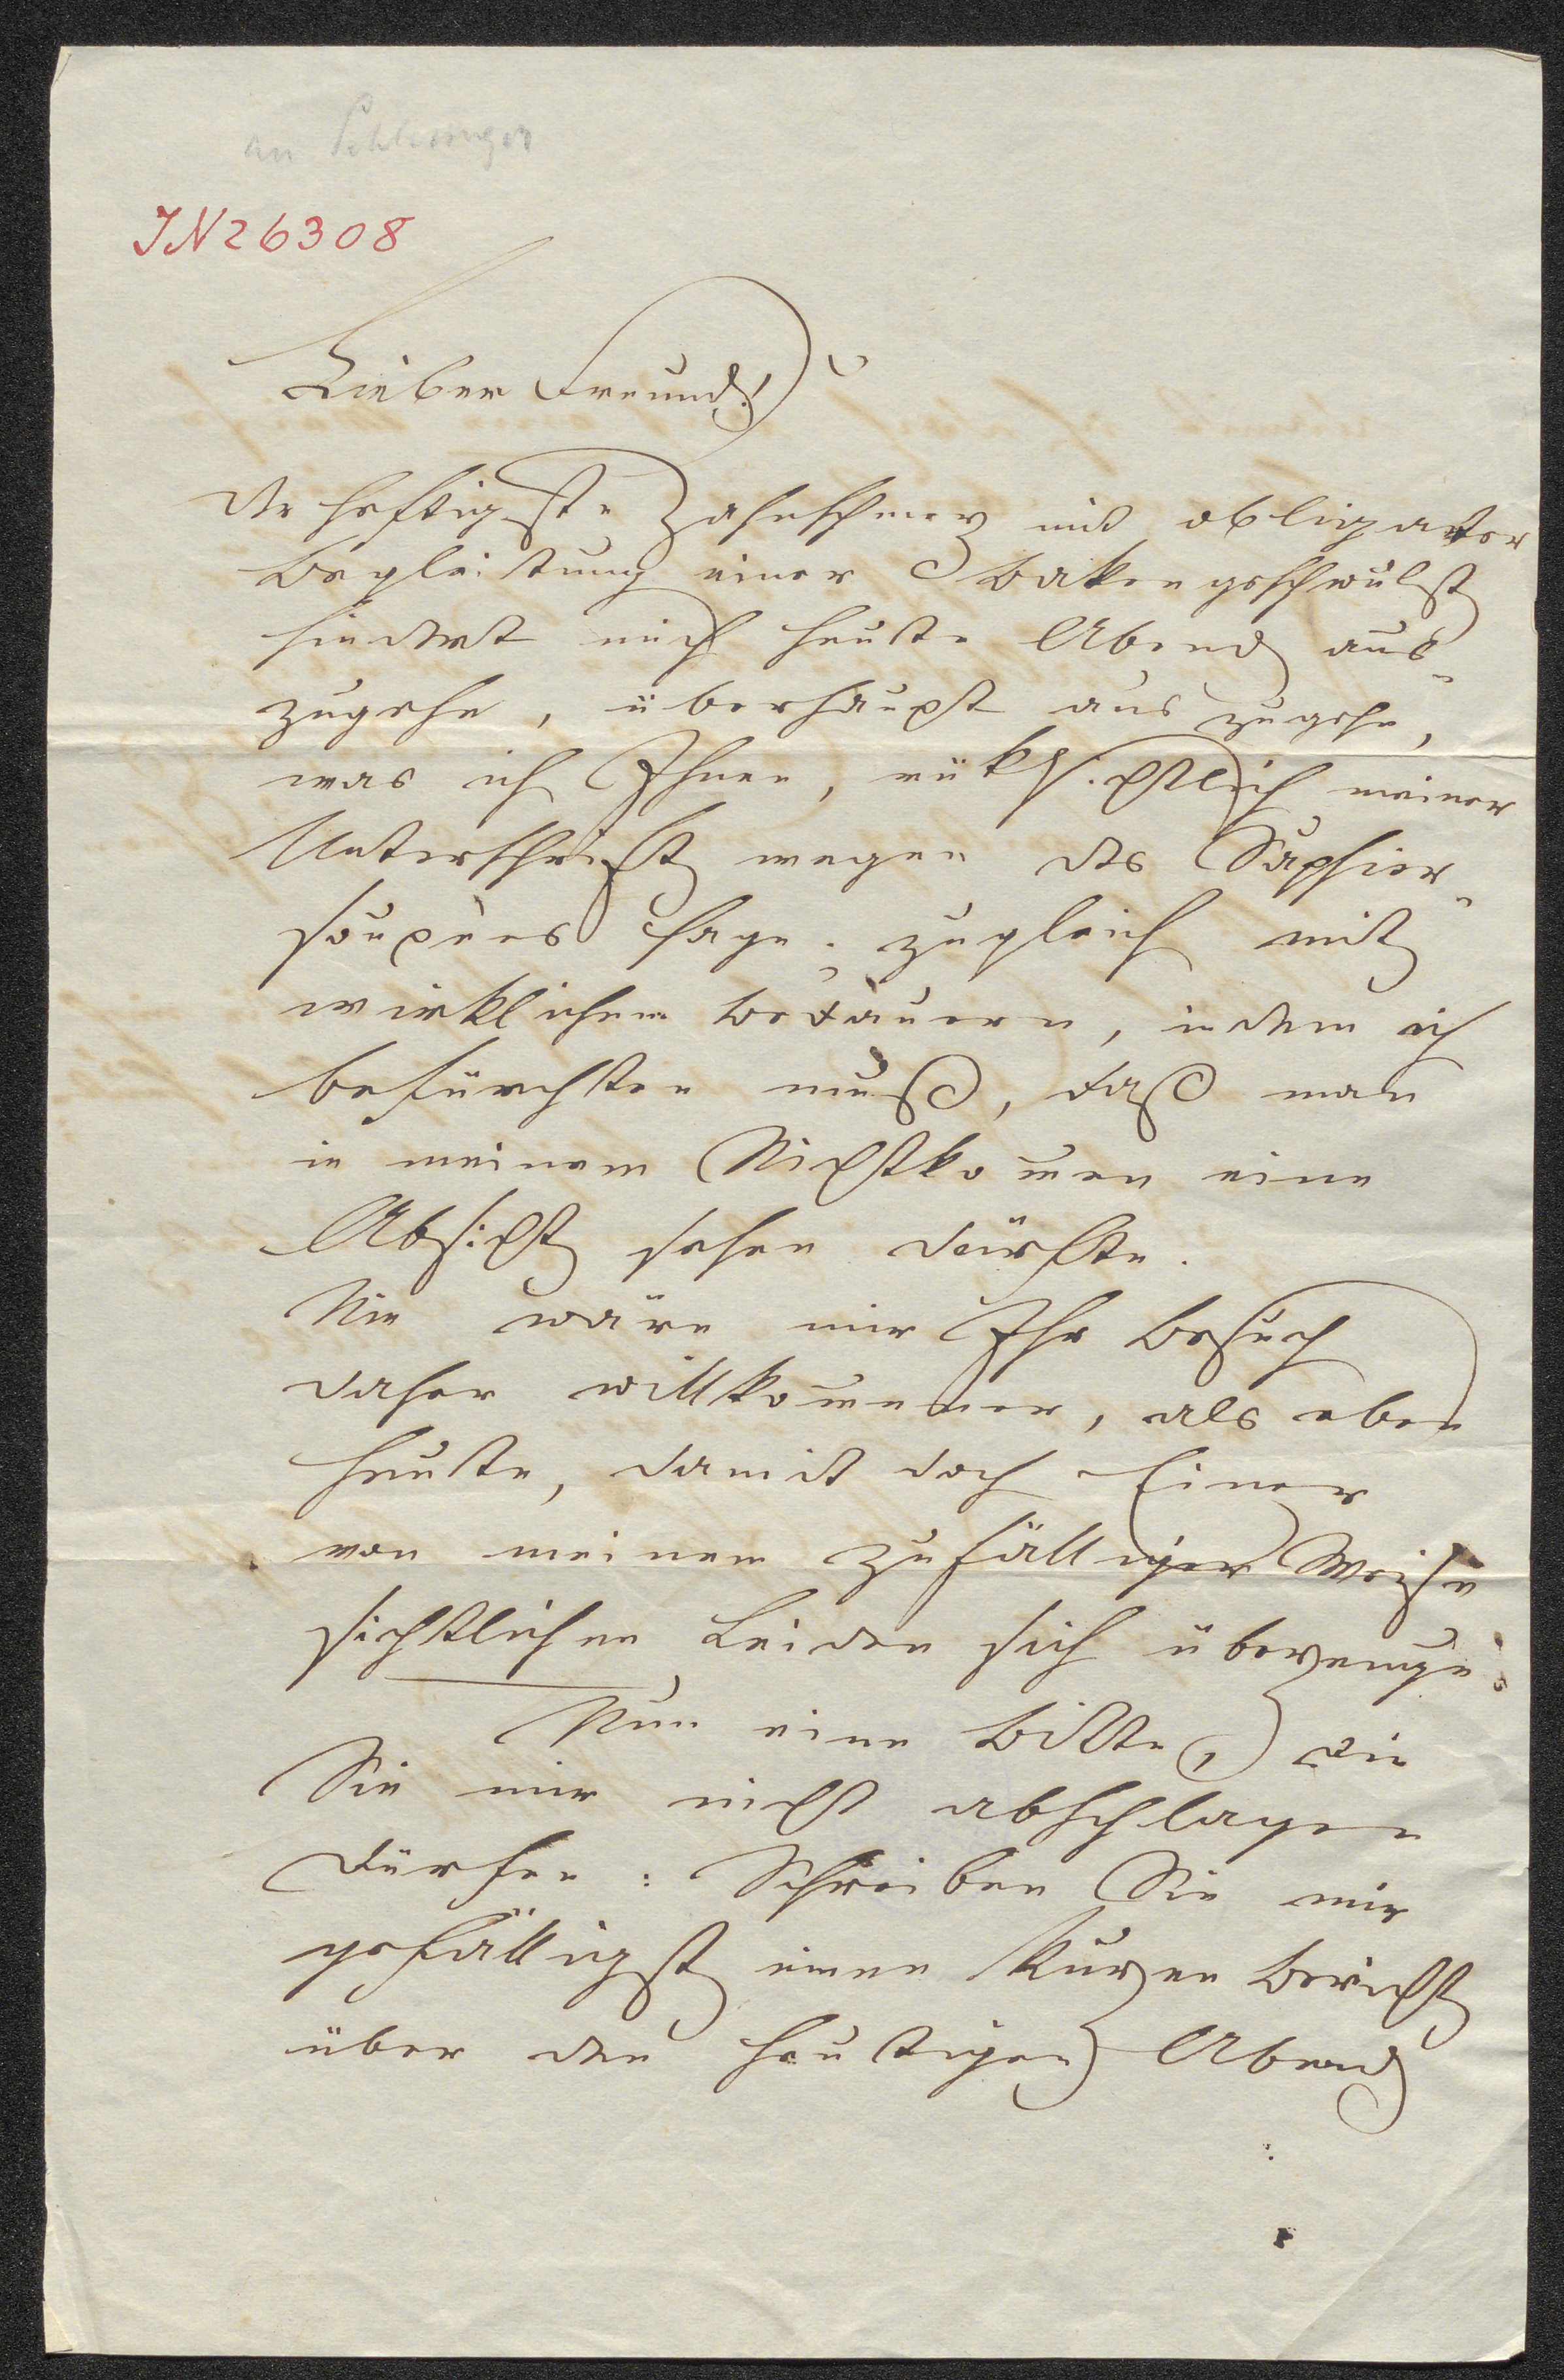 an Schlesinger
IN 26308
Lieber Freund!
Der heftigste Zahnschmerz mit obligater
Begleitung einer Bakengeschwulst
hindert mich heute Abend aus-
zugehn, überhaupt auszugehn,
was ich Ihnen, rüksichtlich meiner
Unterschrift wegen des Saphier-
soupèes sage; zugleich mit
wirklichem Bedauern, indem ich
befürchten muß, daß man
in meinem Nichtkomen eine
Absicht sehen dürfte.
Nie wäre mir Ihr Besuch
daher willkomener, als eben
heute, damit doch Einer
von meinem zufälliger Weise
sichtlichen Leiden sich überzeuge.
Nun eine Bitte, die
Sie mir nicht abschlagen
dürfen: Schreiben Sie mir
gefälligst einen kurzen Bericht
über den heutigen Abend